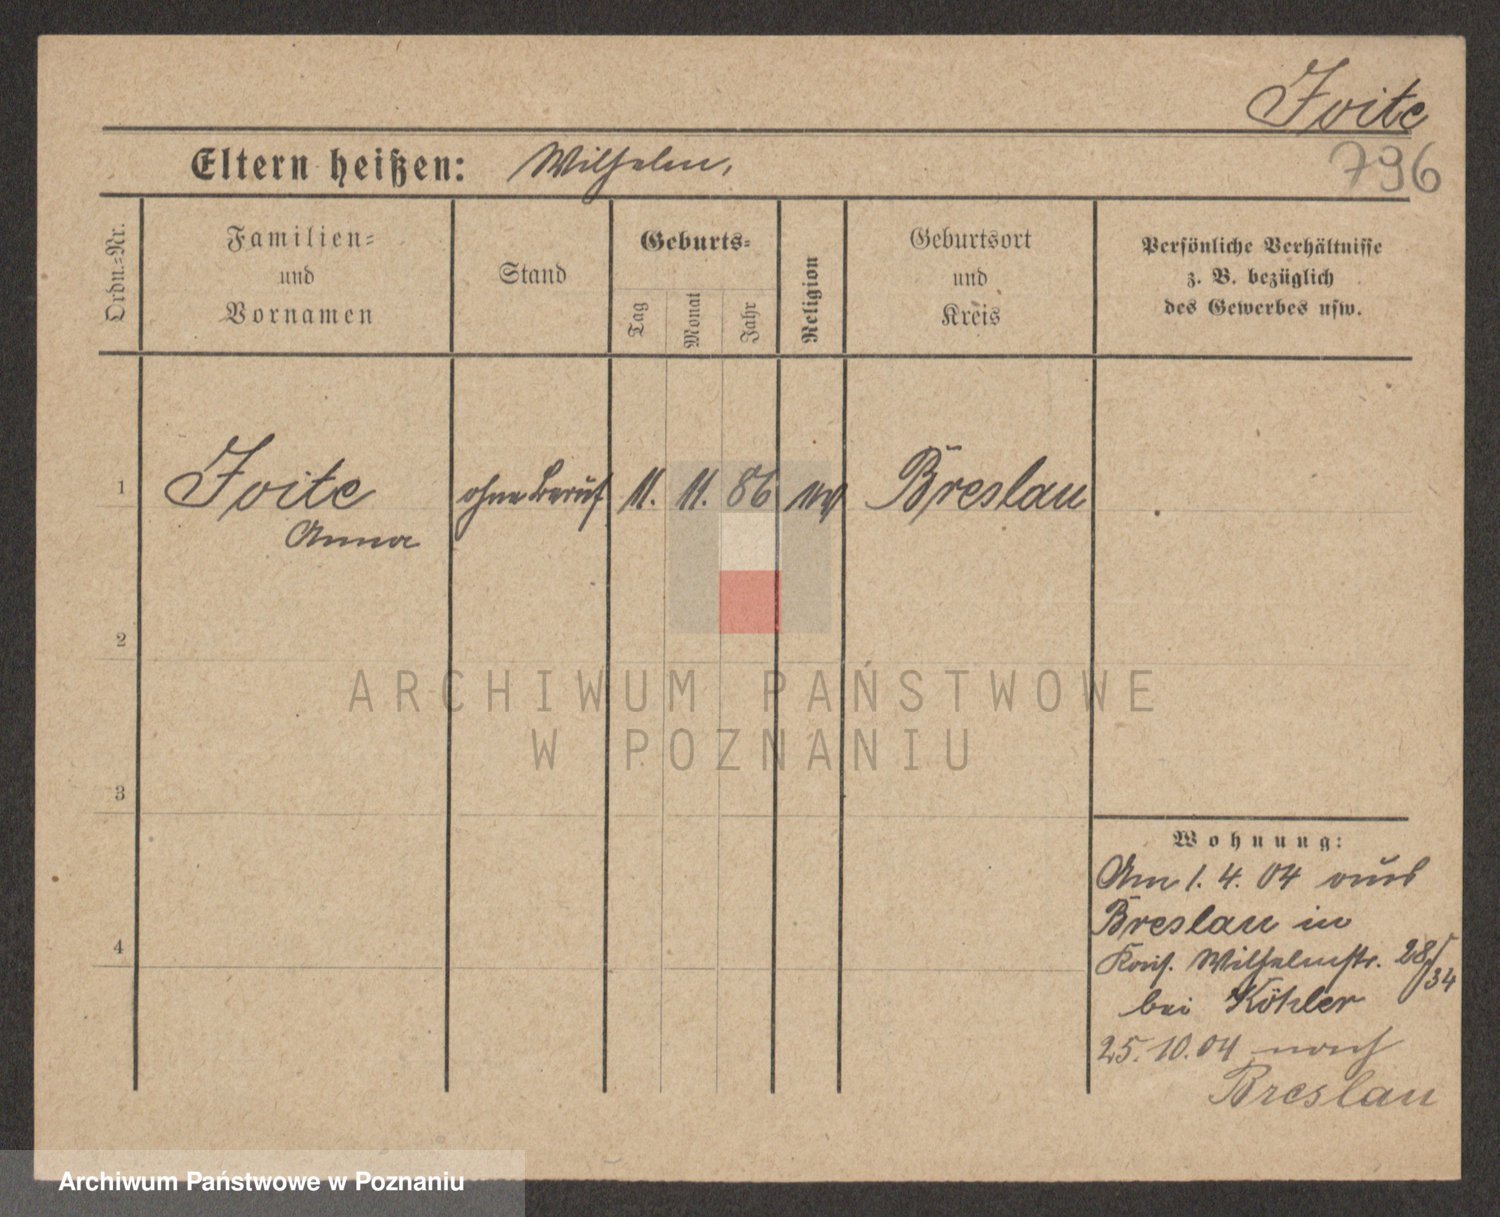 Foite
796
Eltern heißen: Wilhelm,
Ordn.=Nr.
Familien=
und
Vornamen
Stand
Geburts=
Tag
Monat
Jahr
Religion
Geburtsort
und
Kreis
Persönliche Verhältnisse
z. B. bezüglich
des Gewerbes usw.
1
Foite
Anna
ohne Beruf
11.
11.
86
Breslau
2
3
4
Wohnung:
Am 1. 4. 04 aus
Breslau in
Wilhelmstr. 28/34
bei Köhler
25. 10. 04 nach
Breslau
ARCHIWUM PAŃSTWOWE
W POZNANIU
Archiwum Państwowe w Poznaniu